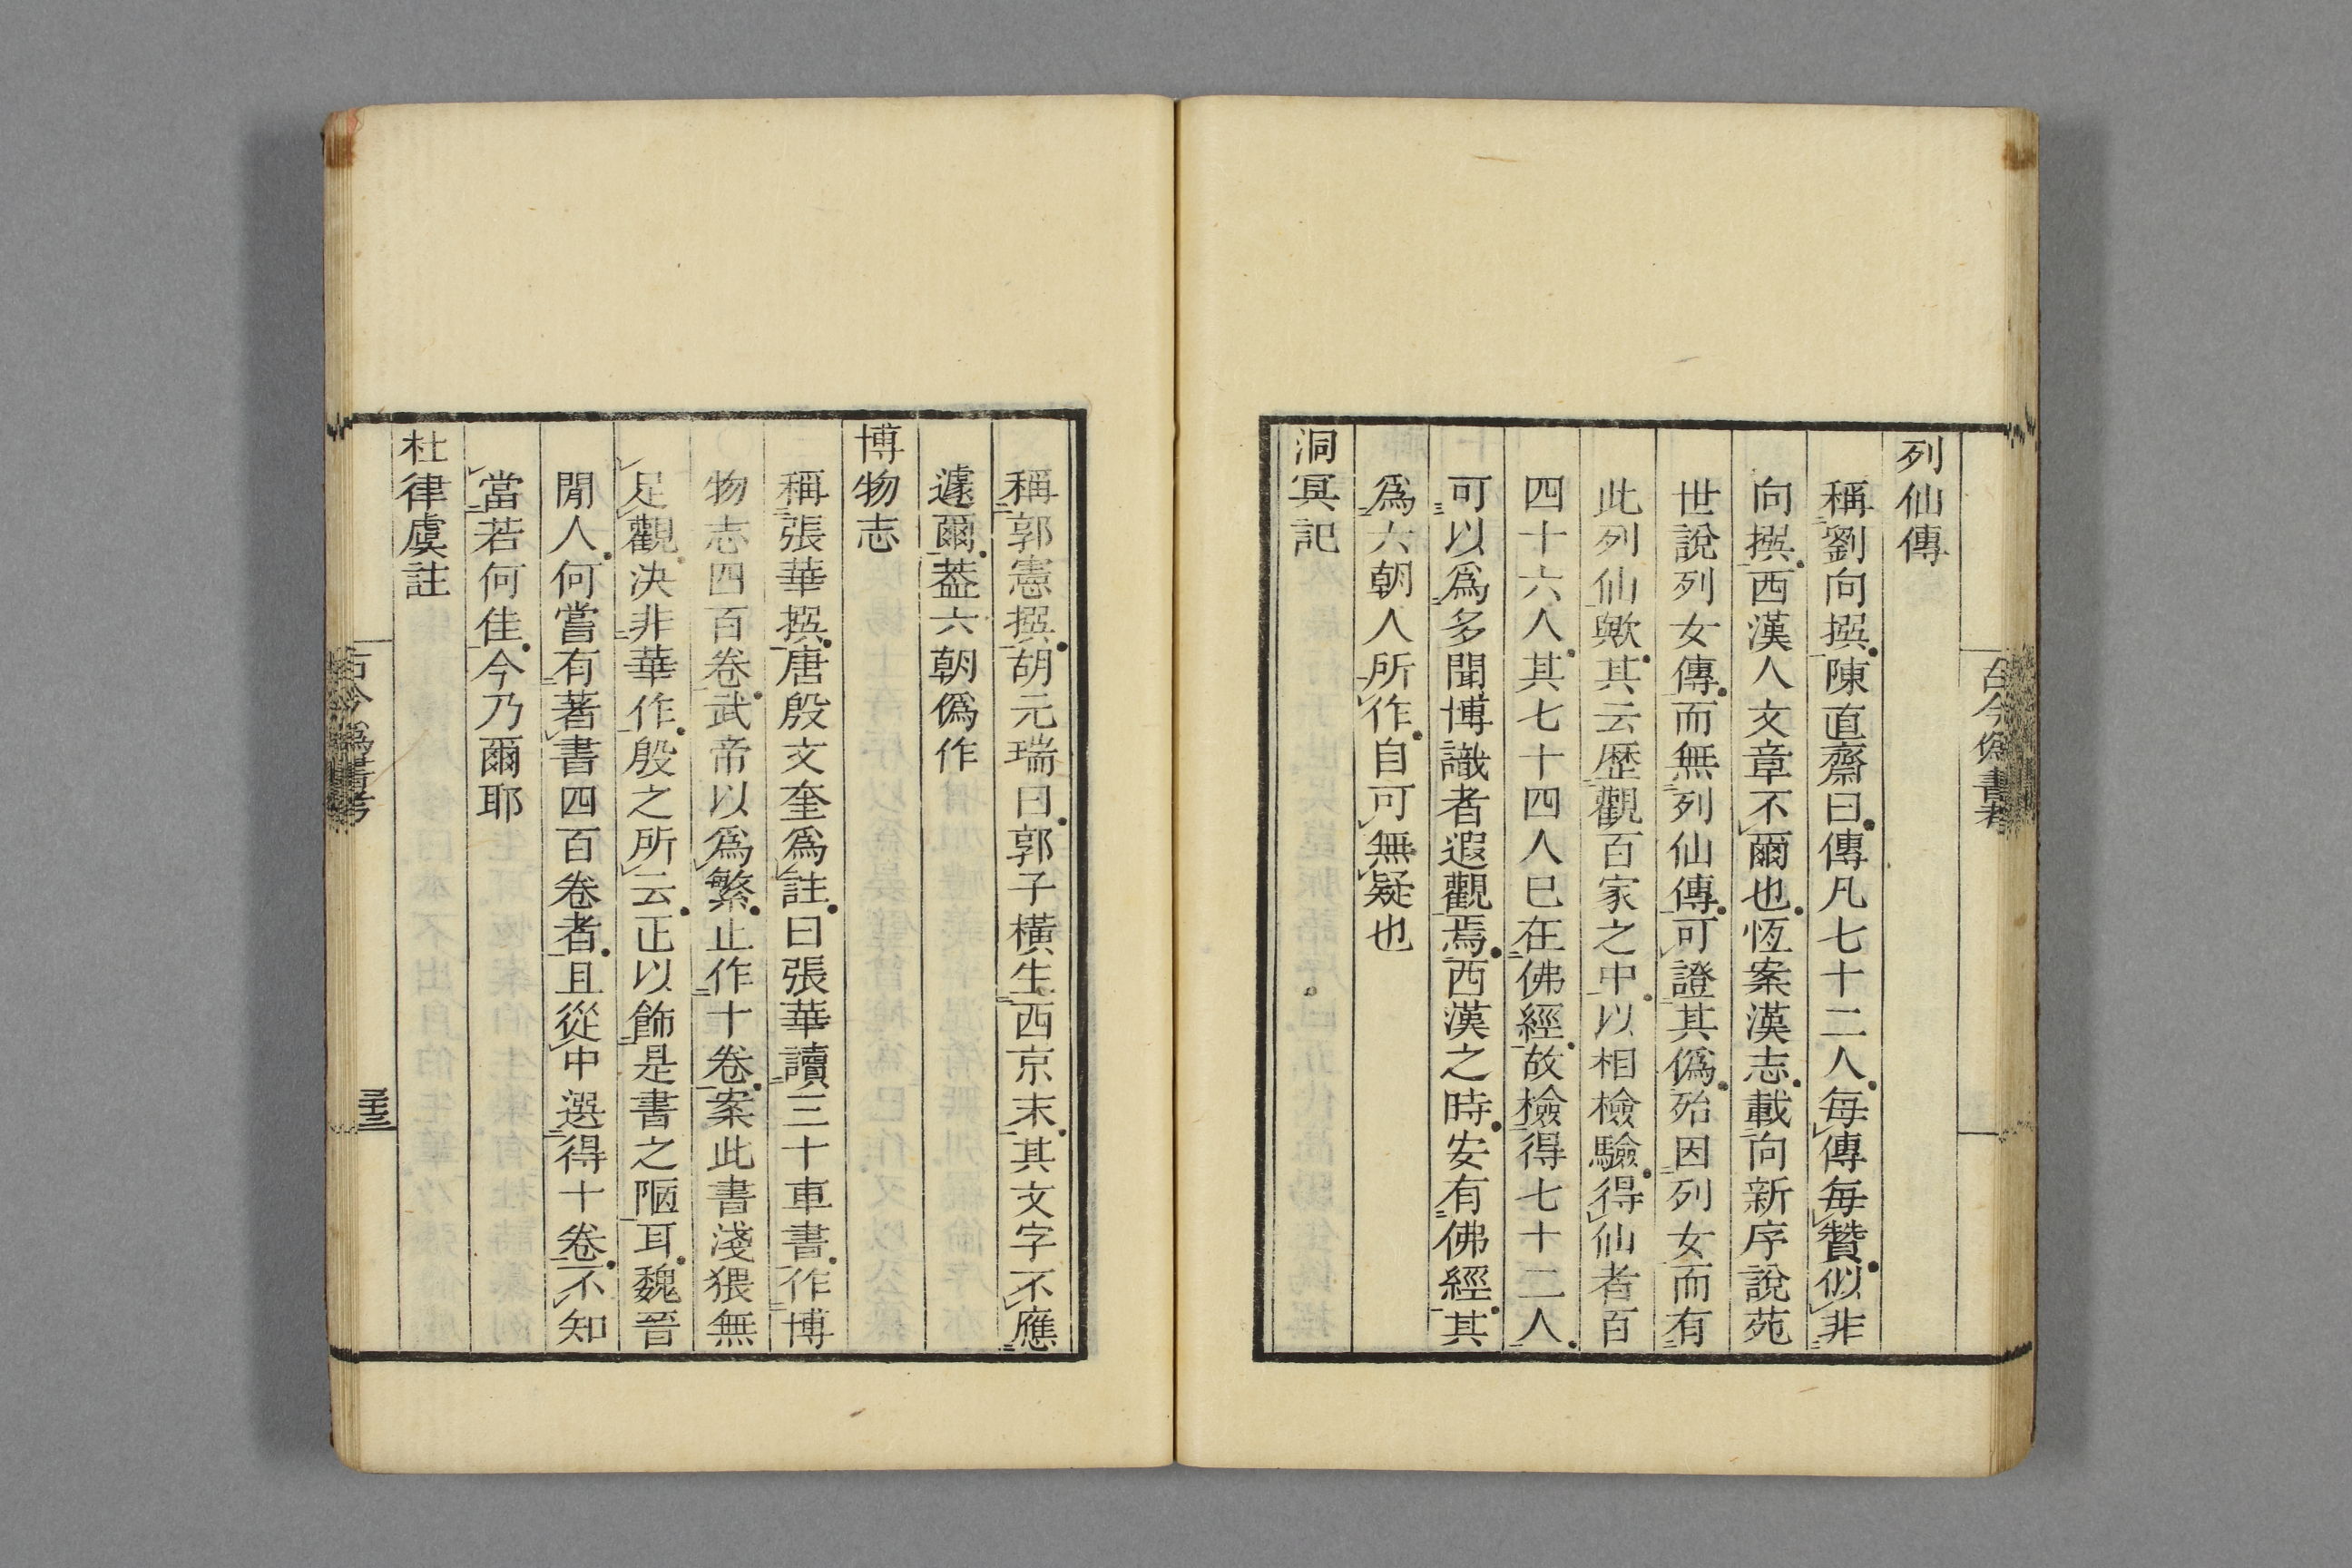 古今僞書考
列仙傳
稱劉向撰陳直齋曰傳凡七十二人每傳每贊似非
向撰西漢人文章不爾也恆案漢志載向新序說苑
世說列女傳而無列仙傳可證其僞殆因列女而有
此列仙歟其云歷觀百家之中以相檢驗得仙者百
四十六人其七十四人已在佛經故檢得七十二人
可以爲多聞博識者遐觀焉西漢之時安有佛經其
爲六朝人所作自可無疑也
洞冥記
稱郭憲撰胡元瑞曰郭子橫生西京末其文字不應
遽爾葢六朝僞作
博物志
稱張華撰唐殷文奎爲註曰張華讀三十車書作博
物志四百卷武帝以爲繁止作十卷案此書淺猥無
足觀決非華作殷之所云正以飾是書之陋耳魏晉
閒人何嘗有著書四百卷者且從中選得十卷不知
當若何佳今乃爾耶
杜律虞註
古今僞書考
三十三